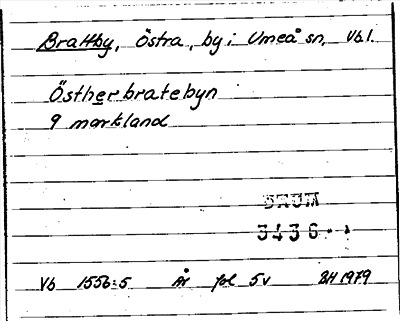 Brattby, Östra, by i Umeå sn, Vb l.
Östherbratebyn
9 markland
DAUM
3436
Vb 1556:5 År fol 5v BH 1979